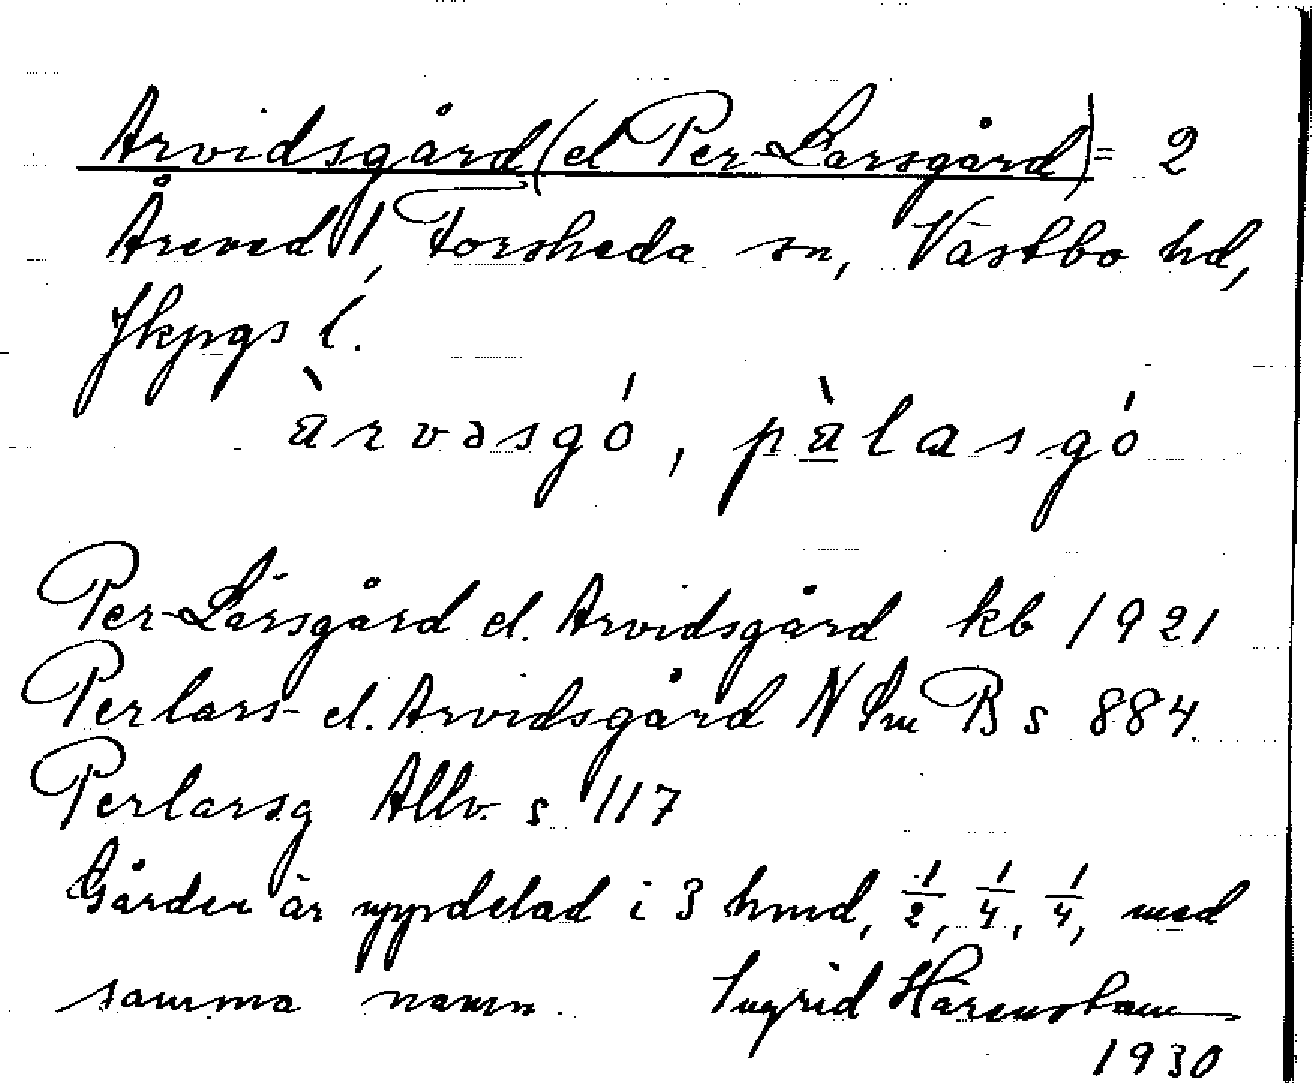 Arvidsgård (el Per-Larsgård) = 2
Åreved 1, Forsheda sn, Västbo hd,
Jkpgs l.
àrvəsgó, pàlasgó
Per-Larsgård el. Arvidsgård kb 1921
Perlars- el. Arvidsgård N Sm B s 884.
Perlarsg Allv. s 117
Gården är uppdelad i 3 hmd, 1/2, 1/4, 1/4, med
samma namn. Ingrid Härenstam
1930